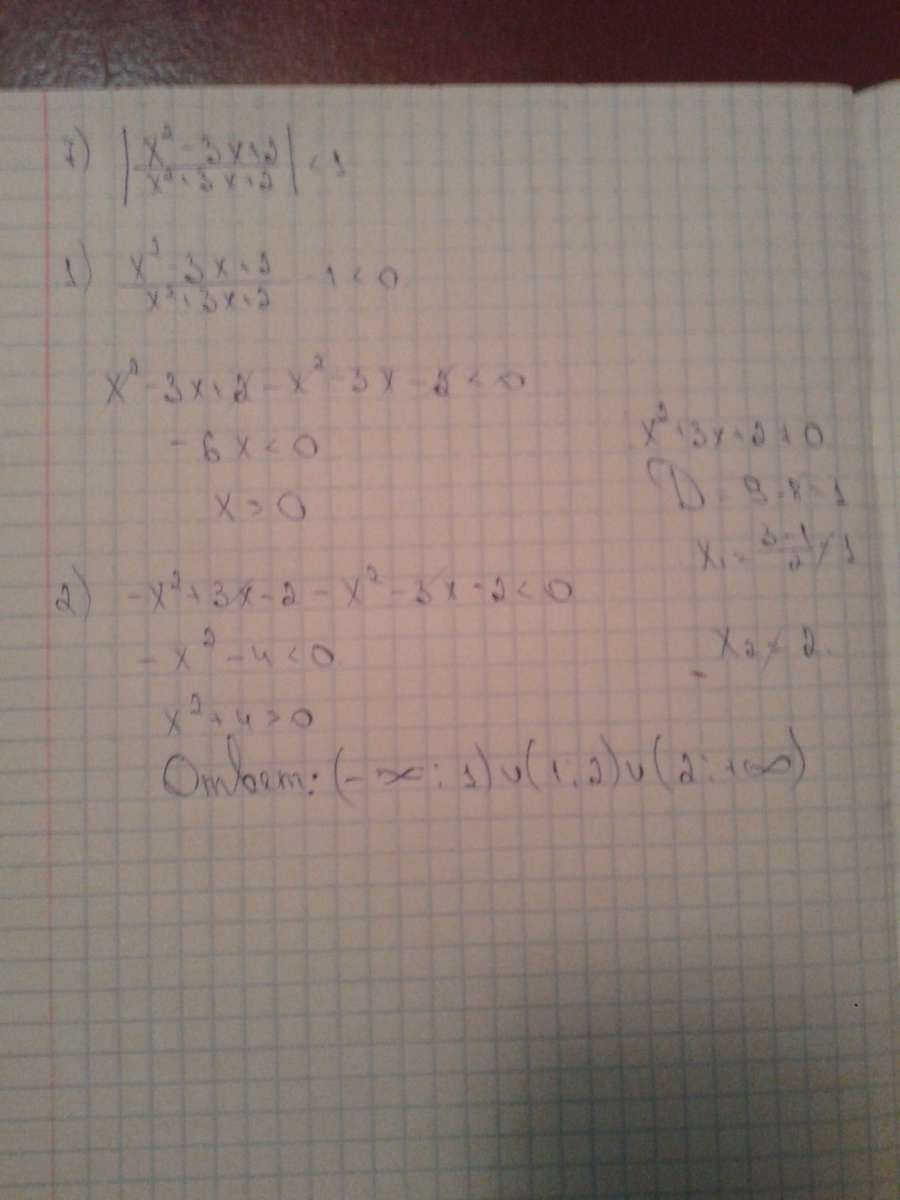 7) |x² - 3x + 2 / x² + 3x + 2| < 1
1) x² - 3x + 2 / x² + 3x + 2 - 1 < 0
x² - 3x + 2 - x² - 3x - 2 < 0
- 6x < 0
x > 0
x² + 3x + 2 ≠ 0
D = 9 - 8 = 1
x₁ = 3 - 1 / 2 ≠ 1
x₂ ≠ 2.
2) -x² + 3x - 2 - x² - 3x - 2 < 0
- x² - 4 < 0
x² + 4 > 0
Ответ: (-∞; 1) ∪ (1; 2) ∪ (2; +∞)